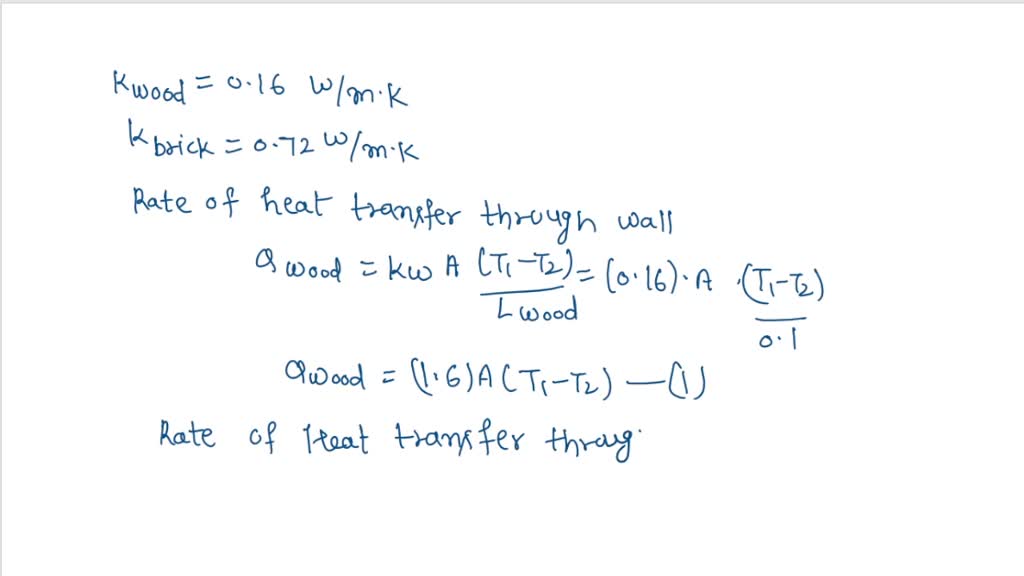 Kwood = 0.16 W/m.K
Kbrick = 0.72 W/m.K
Rate of heat transfer through wall
Qwood = Kw A (T1-T2)/Lwood = (0.16).A .(T1-T2)/0.1
Qwood = (1.6)A(T1-T2) —(1)
Rate of Heat transfer throug